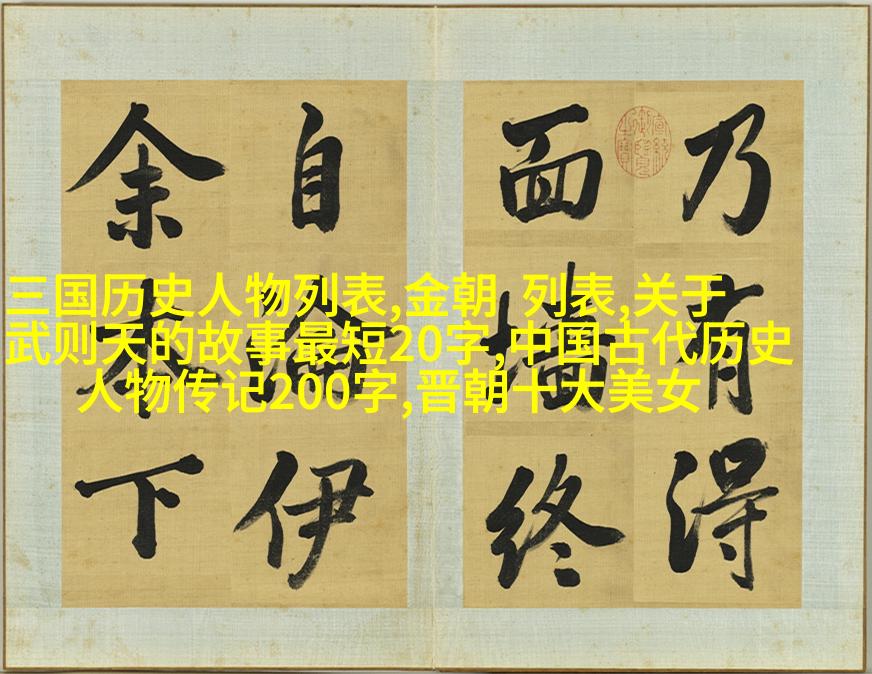 三国历史人物列表,金朝 列表,关于
武则天的故事最短20字,中国古代历史
人物传记200字,晋朝十大美女
乃有得
面墻終
自淪伊
余本下